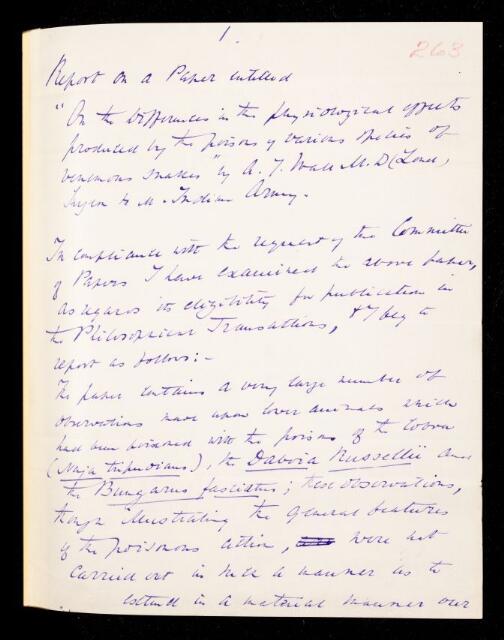 1.
263
Report on a Paper entitled
"On the Differences in the physiological effects
produced by the poisons of various species of
venomous snakes" by A. J. Wall M.D (Lond,
Surgeon H. M. Indian Army.
In compliance with the request of the Committee
of Papers I have examined the above paper,
as regards its eligibility for publication in
the Philosophical Transactions, & I beg to
report as follows:-
The paper contains a very large number of
observations made upon lower animals which
had been poisoned with the poisons of the Cobra
(Naja tripudians), the Daboia Russellii and
the Bungarus fasciatus; these observations,
though illustrating the general features
of the poisonous action, were not
carried out in such a manner as to
extend in a material manner our